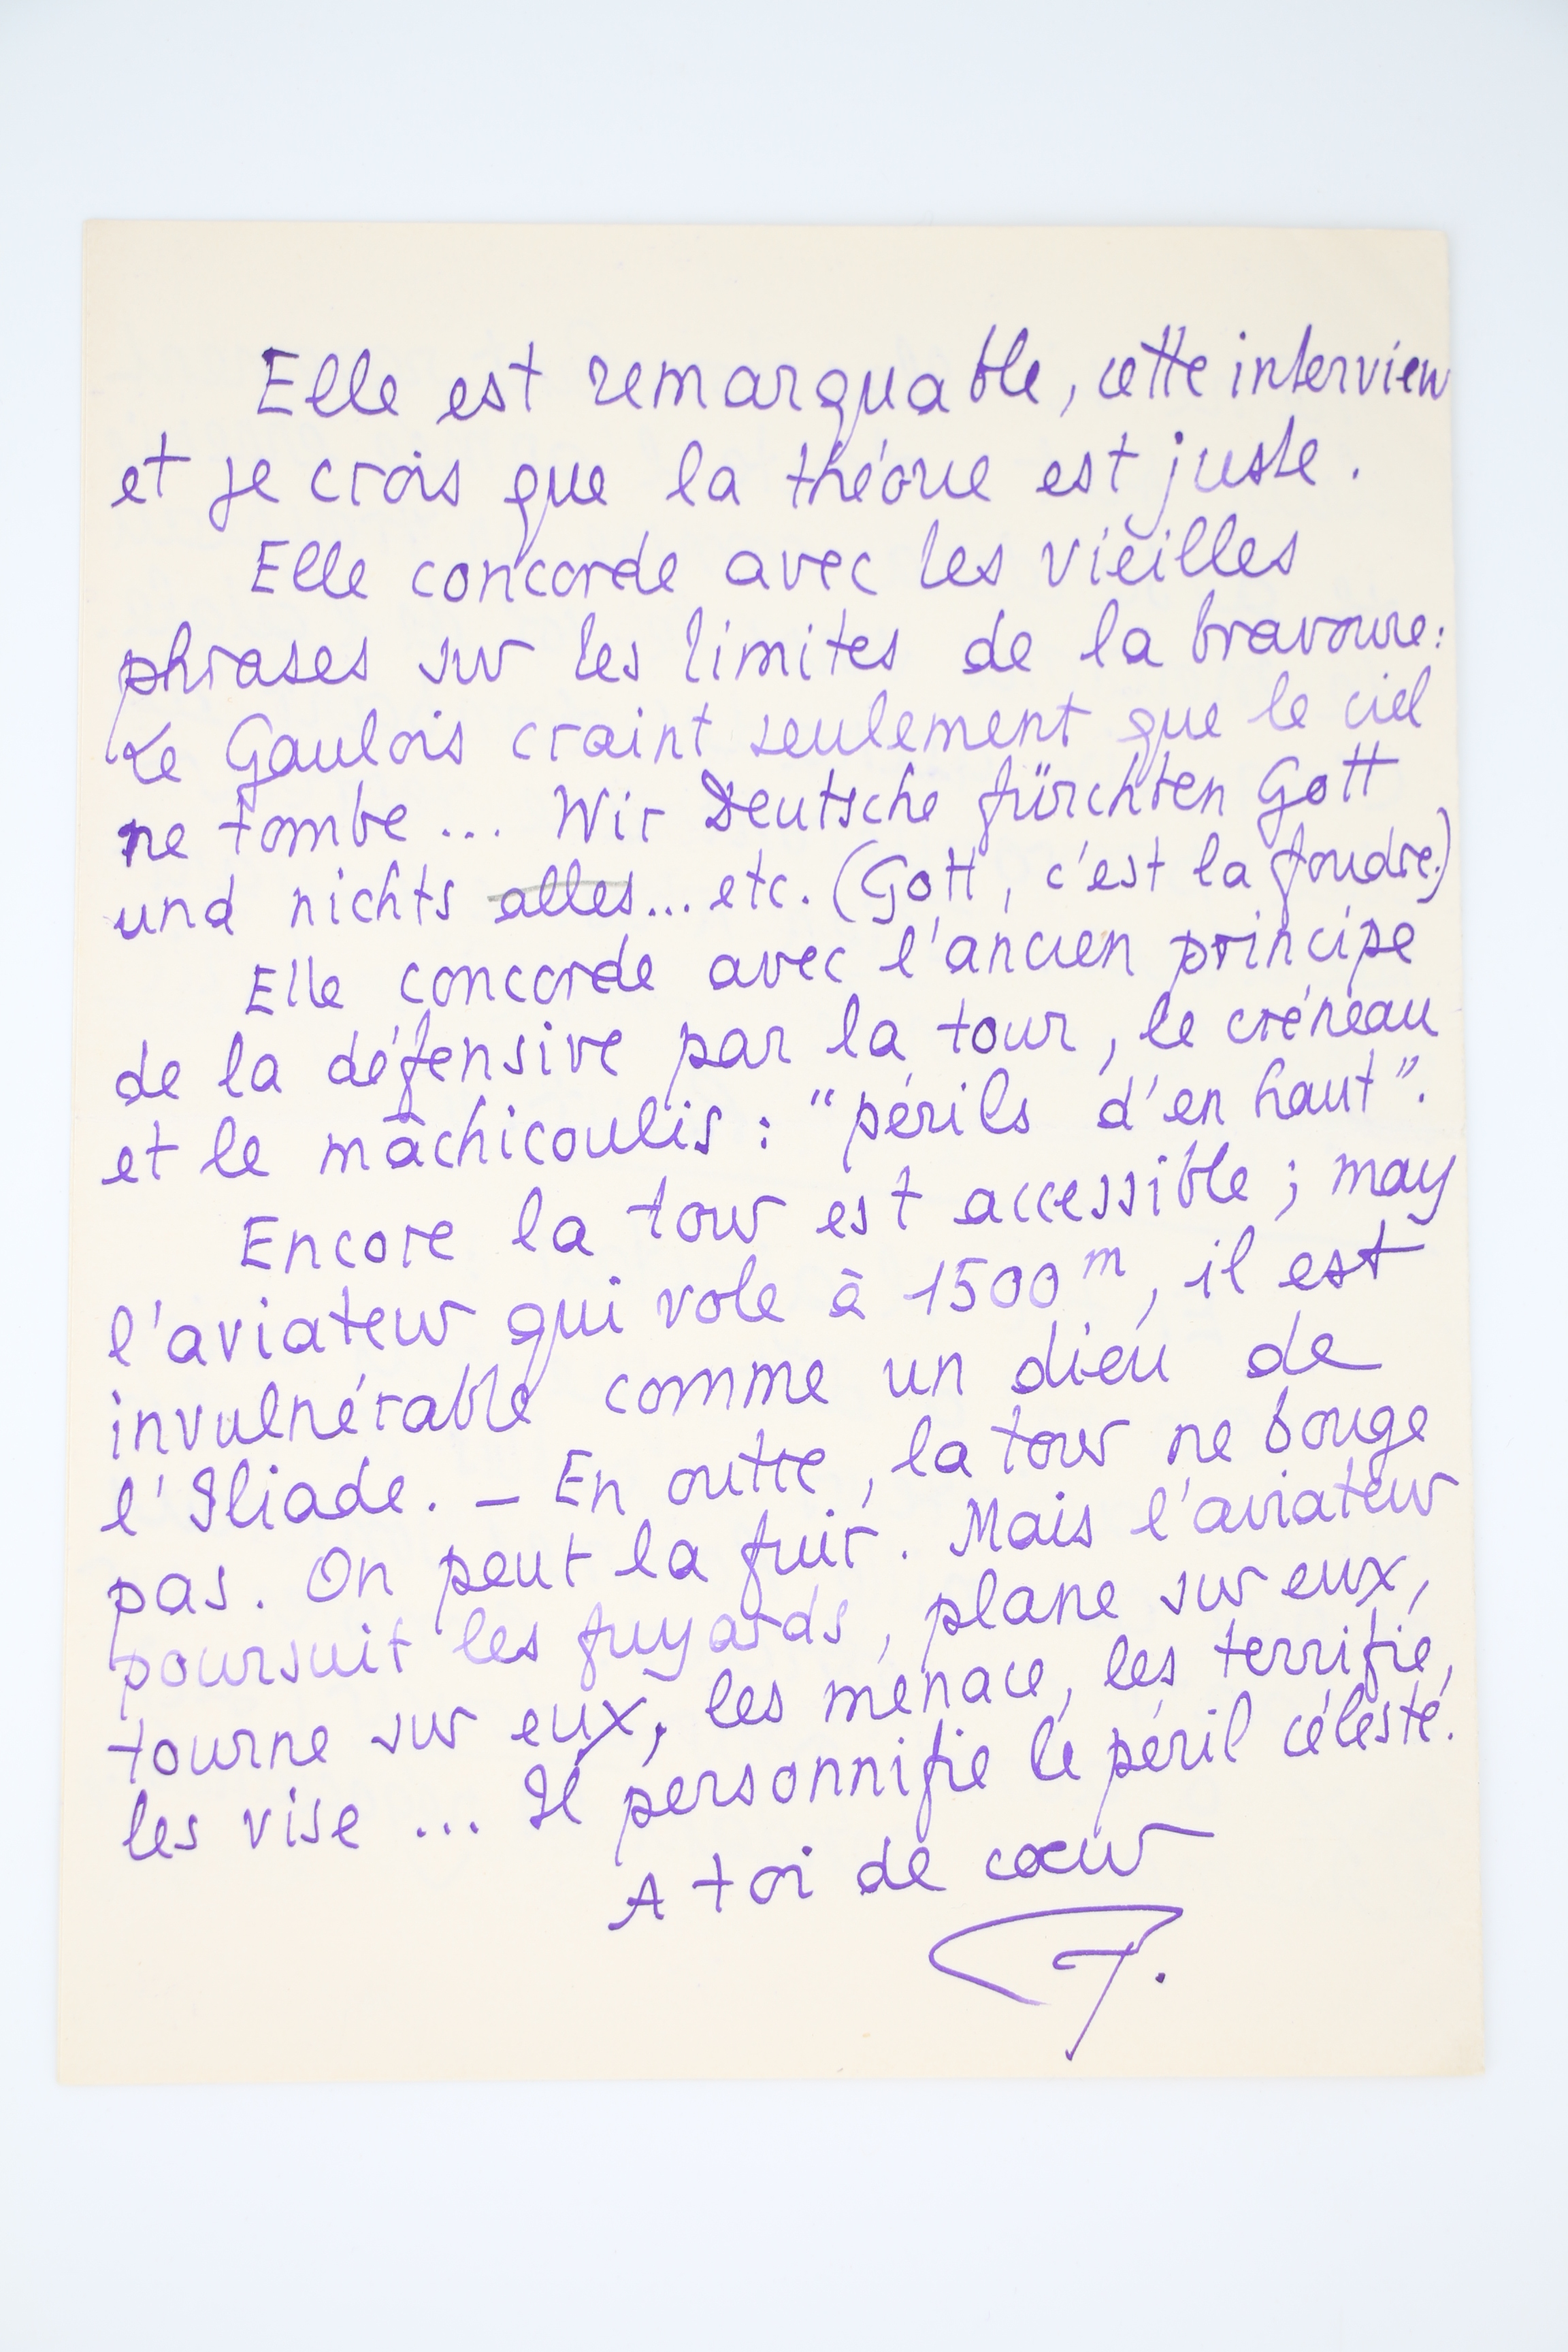 Elle est remarquable, cette interview
et je crois que la théorie est juste.
Elle concorde avec les vieilles
phrases sur les limites de la bravoure:
Le Gaulois craint seulement que le ciel
ne tombe... Wir Deutsche fürchten Gott
und nichts alles... etc. (Gott, c'est la foudre.)
Elle concorde avec l'ancien principe
de la défensive par la tour, le créneau
et le mâchicoulis : "périls d'en haut".
Encore la tour est accessible ; mais
l'aviateur qui vole à 1500m, il est
invulnérable comme un dieu de
l'Iliade. – En outre, la tour ne bouge
pas. On peut la fuir. Mais l'aviateur
poursuit les fuyards, plane sur eux,
tourne sur eux, les menace, les terrifie,
les vise ... Il personnifie le péril céleste.
A toi de cœur